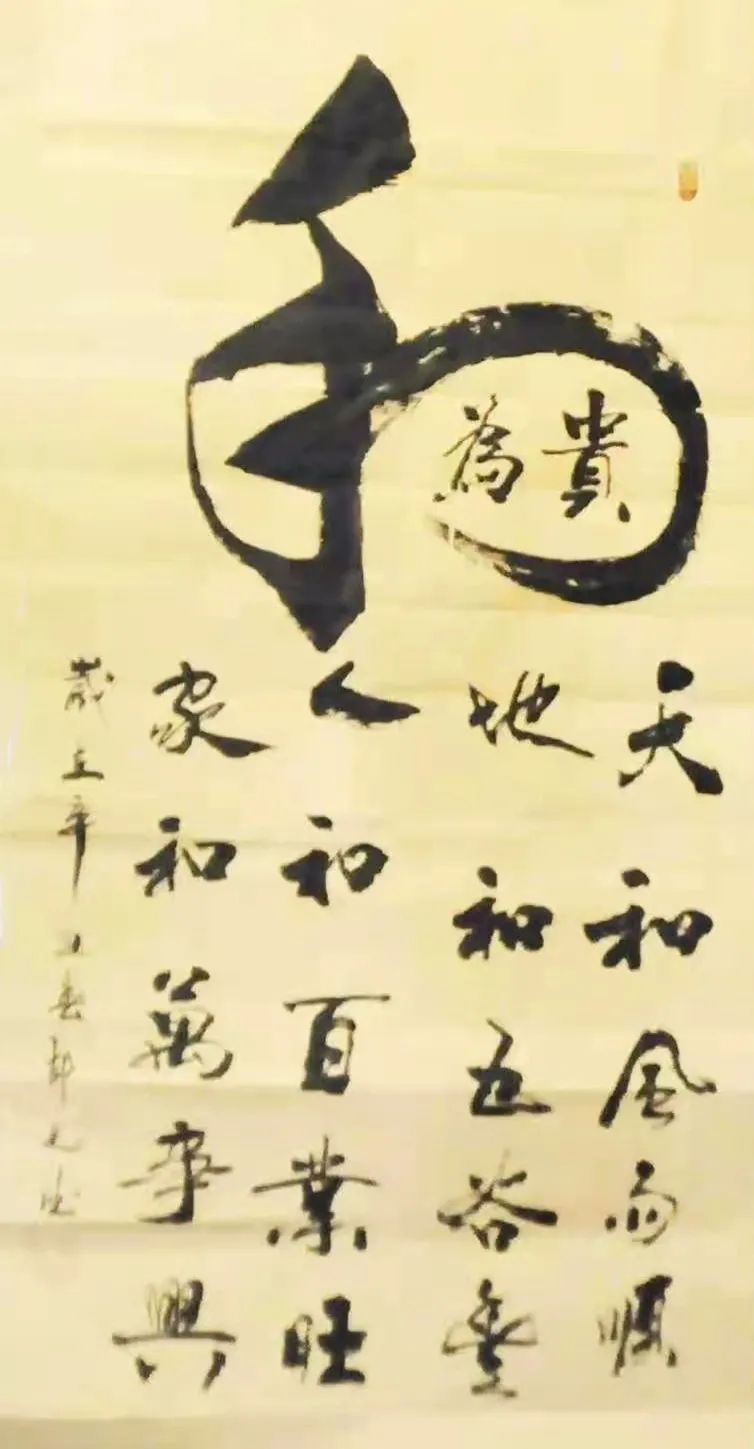 和
為貴
天和風雨順
地和五谷豐
人和百業旺
家和萬事興
歲在辛丑春